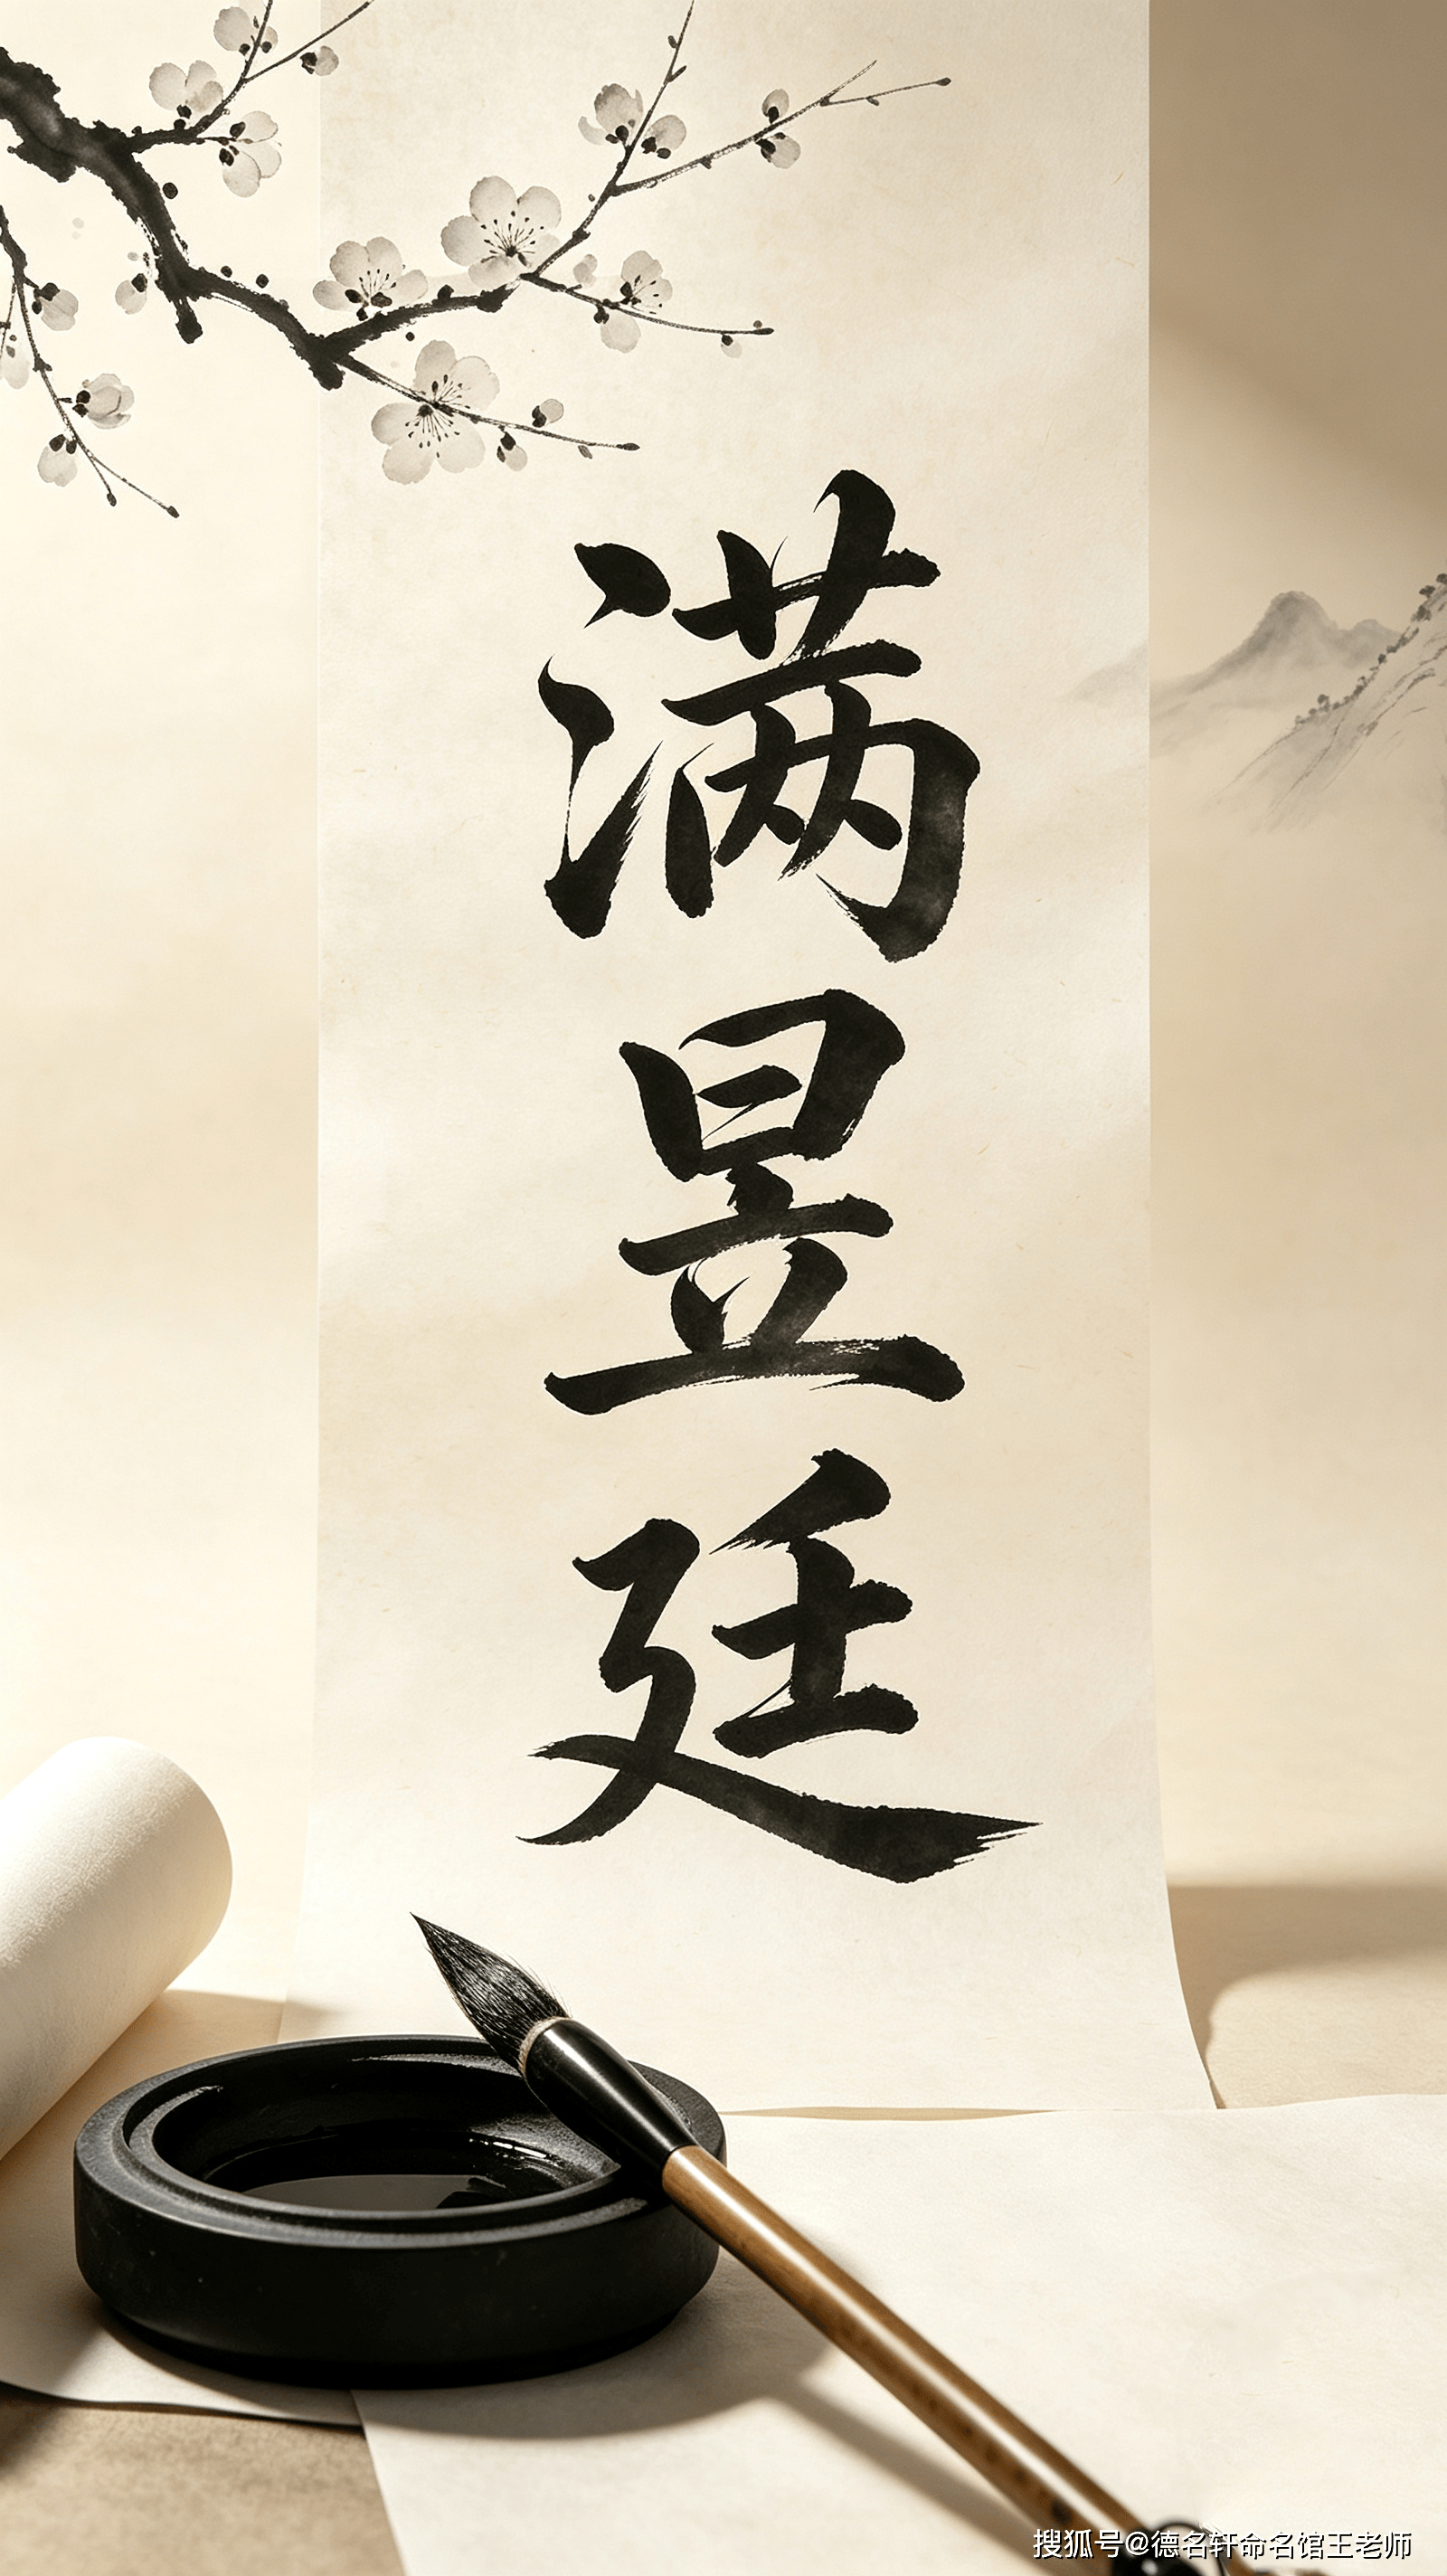 满昱廷
搜狐号@德名轩命名馆王老师